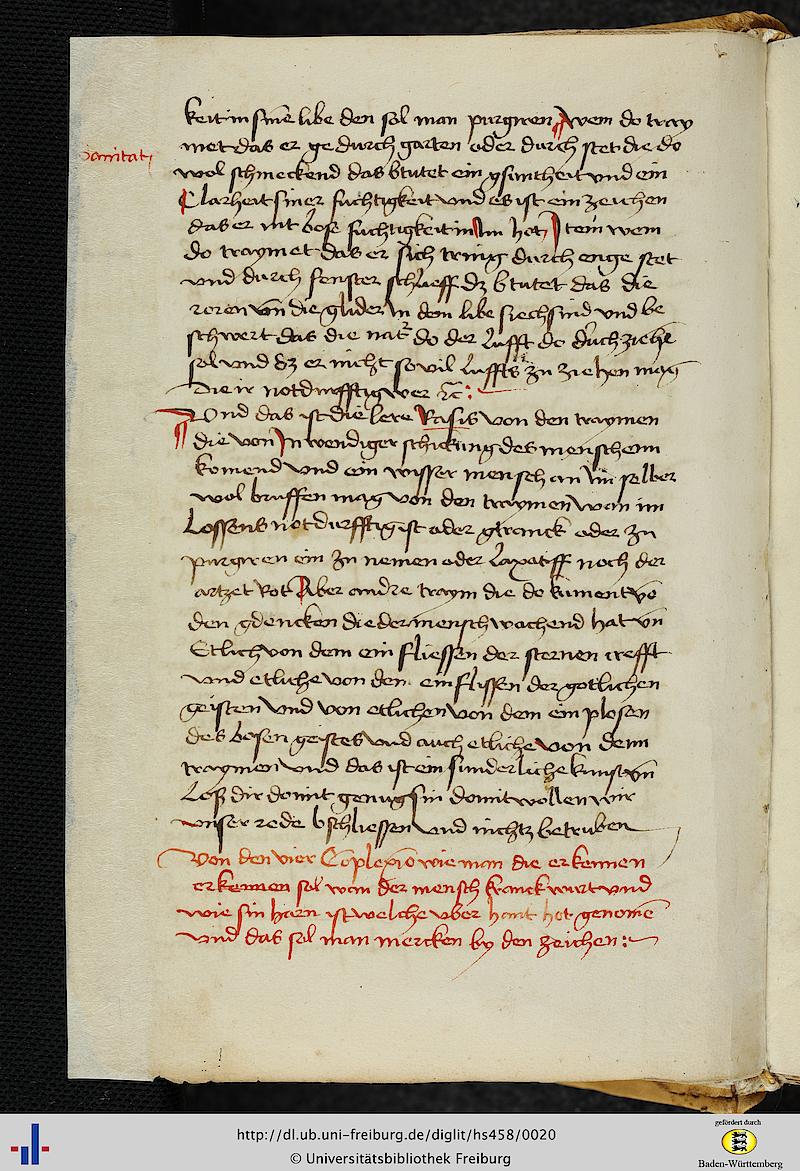 keit in sinē libe den sol man purgiren wem do tray
sanitat
met das er ge durch garten oder durch stet die do
wol schmeckend das btutet ein gsuntheit vnd ein
Clarheit siner fuchtigkeit vnd es ist ein zeichen
das er nit bose fuchtigkeit in Im hot Item wem
do traymet das er sich tring durch enge stet
vnd durch fenster schlueff dz btutet das die
roren vn̄ die glider In dem libe siech sind vnd be
schwert das die nat2 do der lufft do durch ziehē
sol vnd dz er nicht so vil luffts zu ziehen mag
die ir notdurfftig wer ꝛc̄ :
Vnd das ist die lere Rasis von den traymen
die von In wendiger schickung des menschenn
komend vnd ein wisser mensch an im selber
wol bruffen mag von den traymen wan im
Lossens notdurfftig ist oder gtranck oder zu
purgiren ein zu nemen oder laxatiff noch der
artzet Rot Aber andre traym die do kument vō
den gdencken die der mensch wachend hat vn̄
Etlich von dem ein fliessen der sternen trefft
vnd etliche von den einflissen der gotlichen
geisten vnd von etlichen von dem ein plosen
des bosen geistes vnd auch etliche von denn
traymen vnd das ist ein sunderliche kunst vn̄
Loß dir domit genug sin domit wollen wir
vnser rede bschliessen vnd nichtz betruben
Von den vier Cōplexio wie man die erkennen
erkennen sol wan der mensch kranck wurt vnd
wie sin harn ist welche vber hant hot genomē
vnd das sol man mercken by den zeichen :
http://dl.ub.uni-freiburg.de/diglit/hs458/0020
© Universitätsbibliothek Freiburg
gefördert durch
Baden-Württemberg